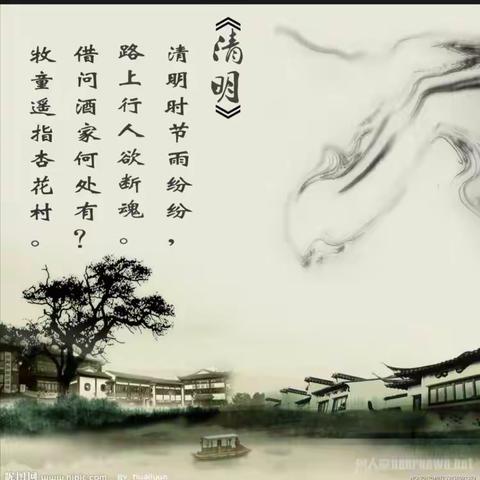 《清明》
清明时节雨纷纷，
路上行人欲断魂。
借问酒家何处有？
牧童遥指杏花村。
昵图网 www.nipic.com